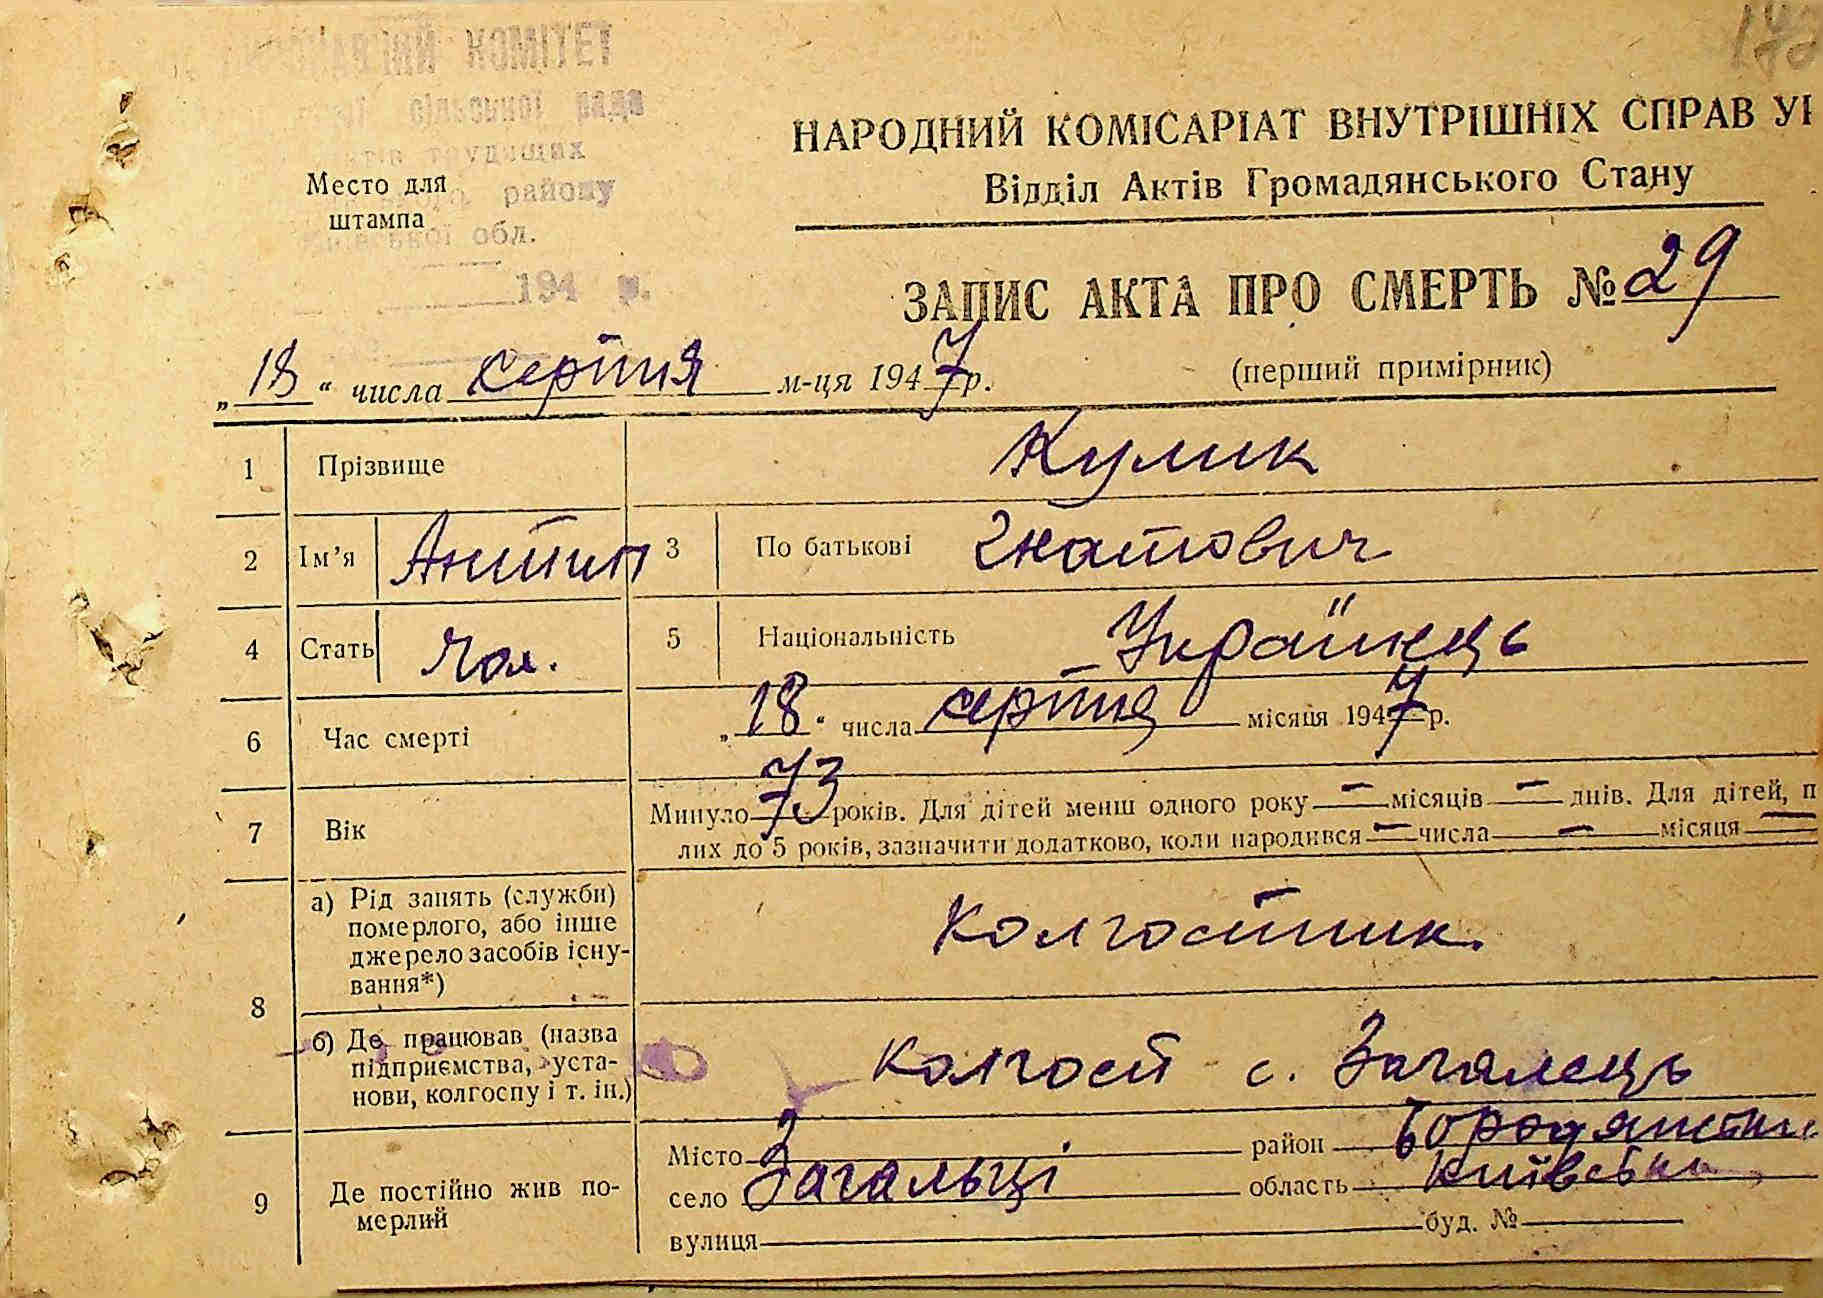 КОМІТЕТ
сільської ради
трудящих
району
Київської обл.
194 р.
Место для
штампа
НАРОДНИЙ КОМІСАРІАТ ВНУТРІШНІХ СПРАВ
Відділ Актів Громадянського Стану
ЗАПИС АКТА ПРО СМЕРТЬ № 29
„18“ числа серпня м-ця 1947 р.
(перший примірник)
1 Прізвище Кулик
2 Ім’я Антип 3 По батькові Гнатович
4 Стать Чол. 5 Національність Українець
6 Час смерті „18“ числа серпня місяця 1947 р.
7 Вік Минуло 73 років. Для дітей менш одного року — місяців — днів. Для дітей, п
лих до 5 років, зазначити додатково, коли народився — числа — місяця —
8 а) Рід занять (служби)
померлого, або інше
джерело засобів існу-
вання*)
Колгоспник.
б) Де працював (назва
підприємства, уста-
нови, колгоспу і т. ін.)
Колгосп с. Загалець
9 Де постійно жив по-
мерлий
Місто район Бородянський
село Загальці область Київська
вулиця буд. №